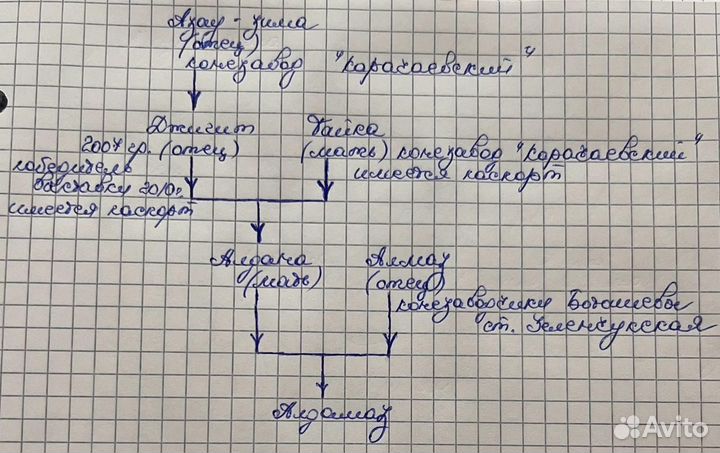 Азау - зима
(отец)
конезавод "Карачаевский"
Джигит
2007 гр. (отец)
победитель
выставки 2010г.
имеется паспорт
Гайка
(мать) конезавод "Карачаевский"
имеется паспорт
Алдана
(мать)
Алмаз
(отец)
конезаводчики Богатыревы
ст. Зеленчукская
Алдамаз
Avito